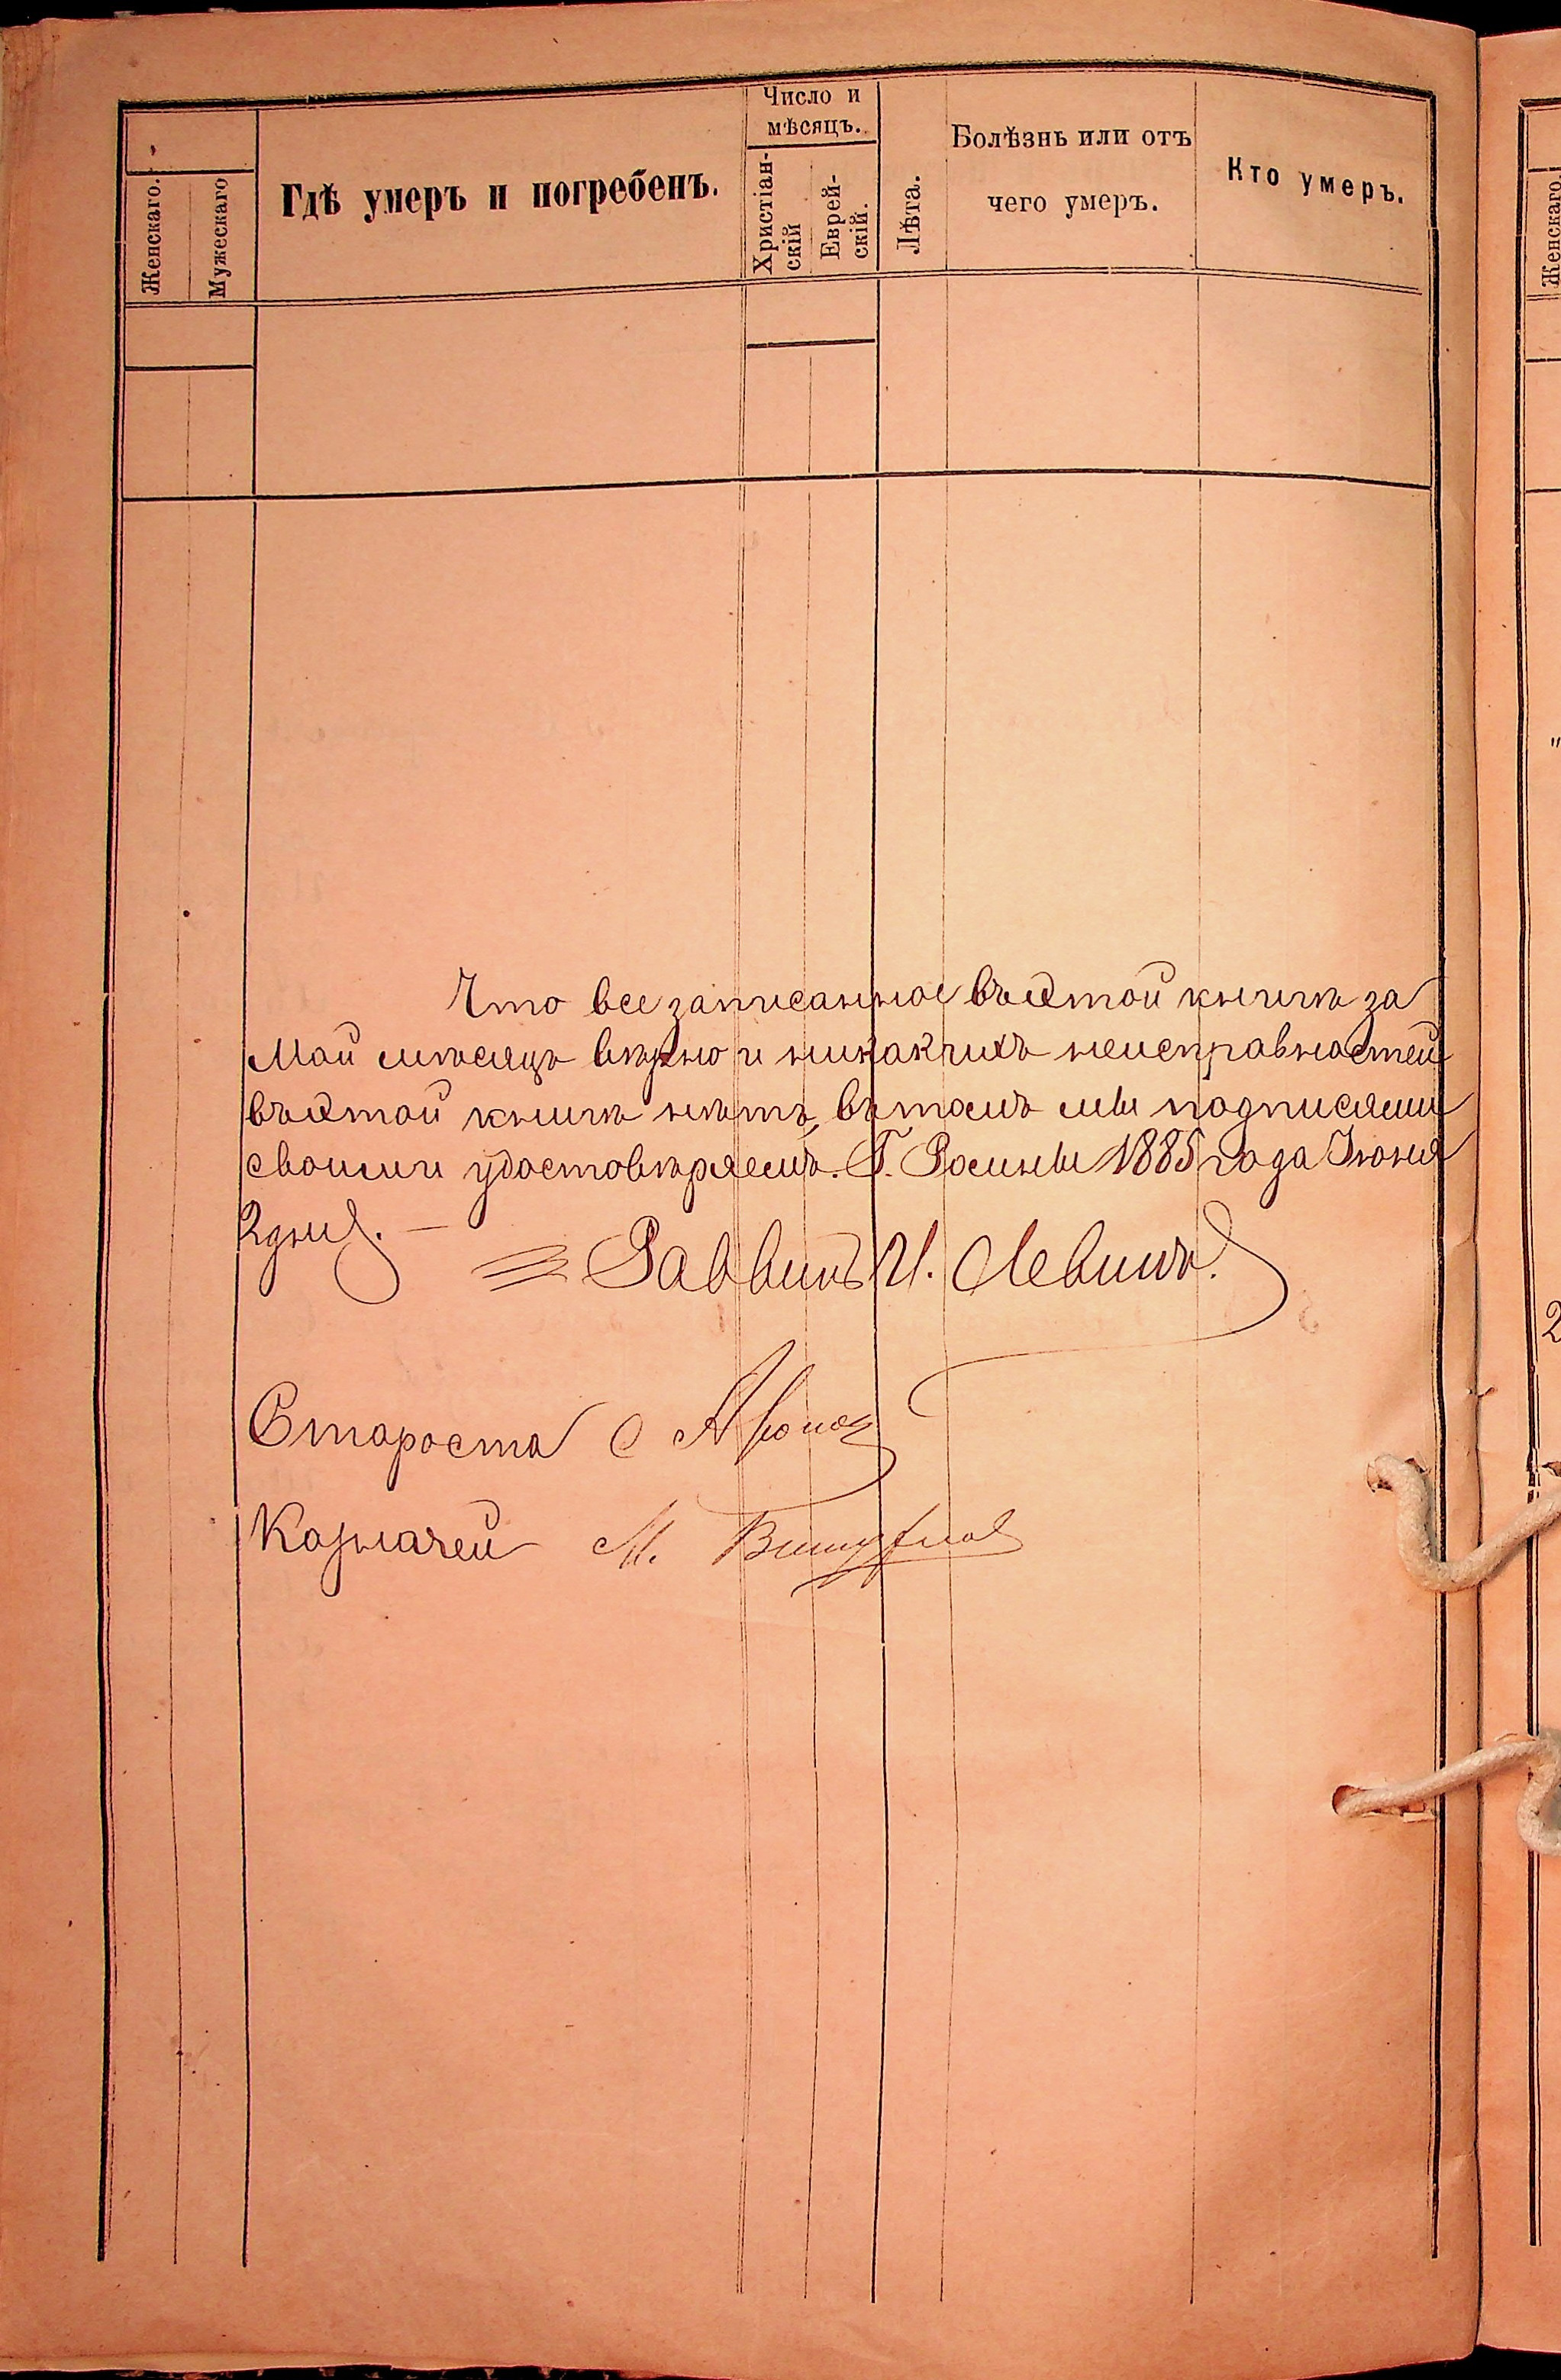 Женскаго.
Мужескаго
Гдѣ умеръ и погребенъ.
Число и
мѣсяцъ.
Христіан-
скій
Еврей-
скій.
Лѣта.
Болѣзнь или отъ
чего умеръ.
Кто умеръ.
Что все записанное въ этой книгѣ за
Май мѣсяцъ вѣрно и никакихъ неисправностей
въ этой книгѣ нѣтъ, въ томъ мы подписями
своими удостовѣряемъ. Г. Росіены 1885 года Іюня
2 дня. —
Раввинъ И. Левинъ.
Староста
Казначей М.
Женскаго.
2